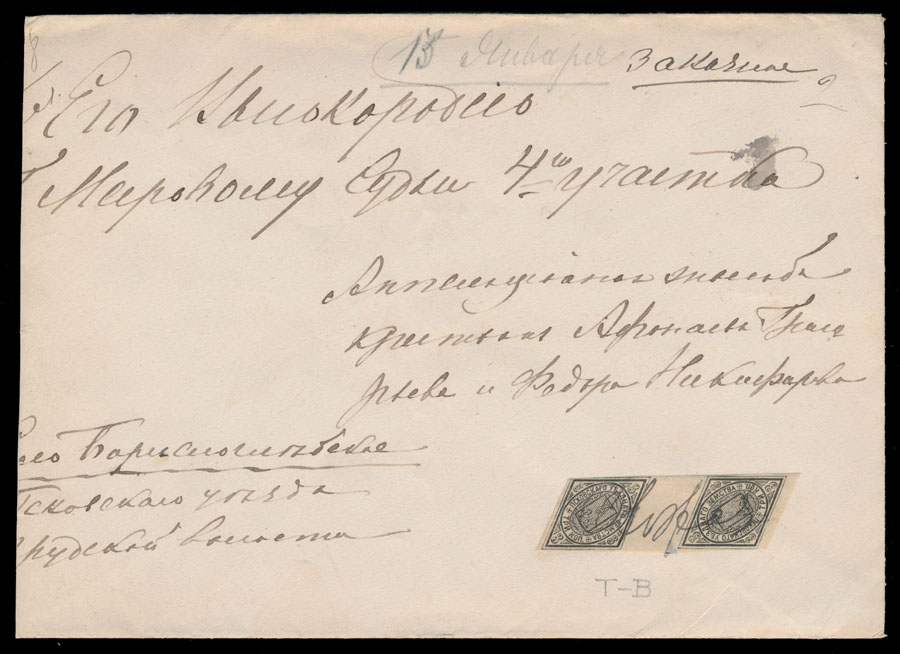 15 Января Заказное
Его Высокородію
Мировому Судьи 4го участка
Аппеляціонная жалоба
крестьянъ Афонасья Григо
рьева и Федора Никифорова
Село Борисоглѣбское
Псковскаго уѣзда
волости
Т-В